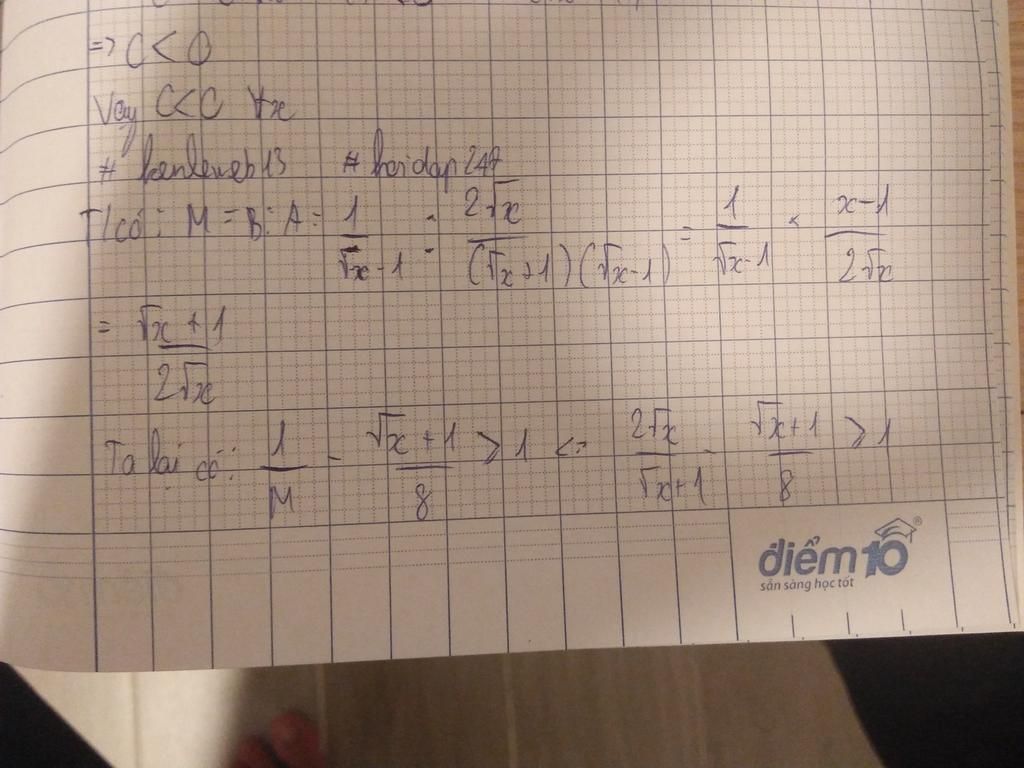 => C < 0
Vậy C<C ∀x
# kenleweb13 # hoidap247
T/có: M = B : A = 1/(√x - 1) : 2√x/((√x + 1)(√x - 1)) = 1/(√x - 1) × (x - 1)/(2√x)
= (√x + 1)/(2√x)
Ta lại có: 1/M - (√x + 1)/8 ≥ 1 <=> 2√x/(√x + 1) - (√x + 1)/8 ≥ 1
điểm10®
sẵn sàng học tốt